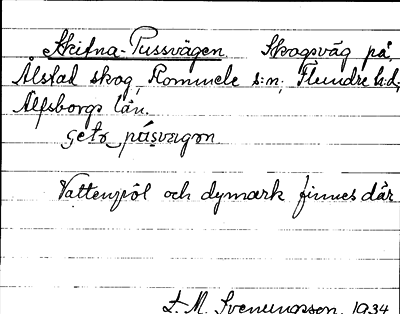 Skitna-Pussvägen Skogsväg på
Ålstad skog, Rommele s:n, Flundre h:d,
Älfsborgs län.
Vattenpöl och dymark finnes där
L. M. Svenungsson. 1934